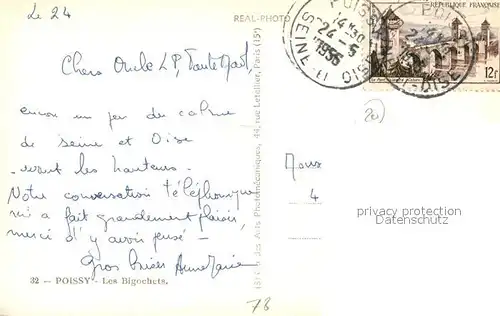 Le 24
REAL-PHOTO
Chers Oncle LP, Tante Mart,
encore un peu de calme
de Seine et Oise
avant les hauteurs.
Notre conversation téléphonique
m'a fait grandement plaisir,
merci d'y avoir pensé -
Gros baisers Anne Marie
32 — POISSY - Les Bigochets.
78
(S) des Arts Photomécaniques, 44, rue Letellier, Paris (15e)
POISSY
14H30
24 - 5
1955
SEINE ET OISE
REPUBLIQUE FRANÇAISE
12F
20
4
privacy protection
Datenschutz